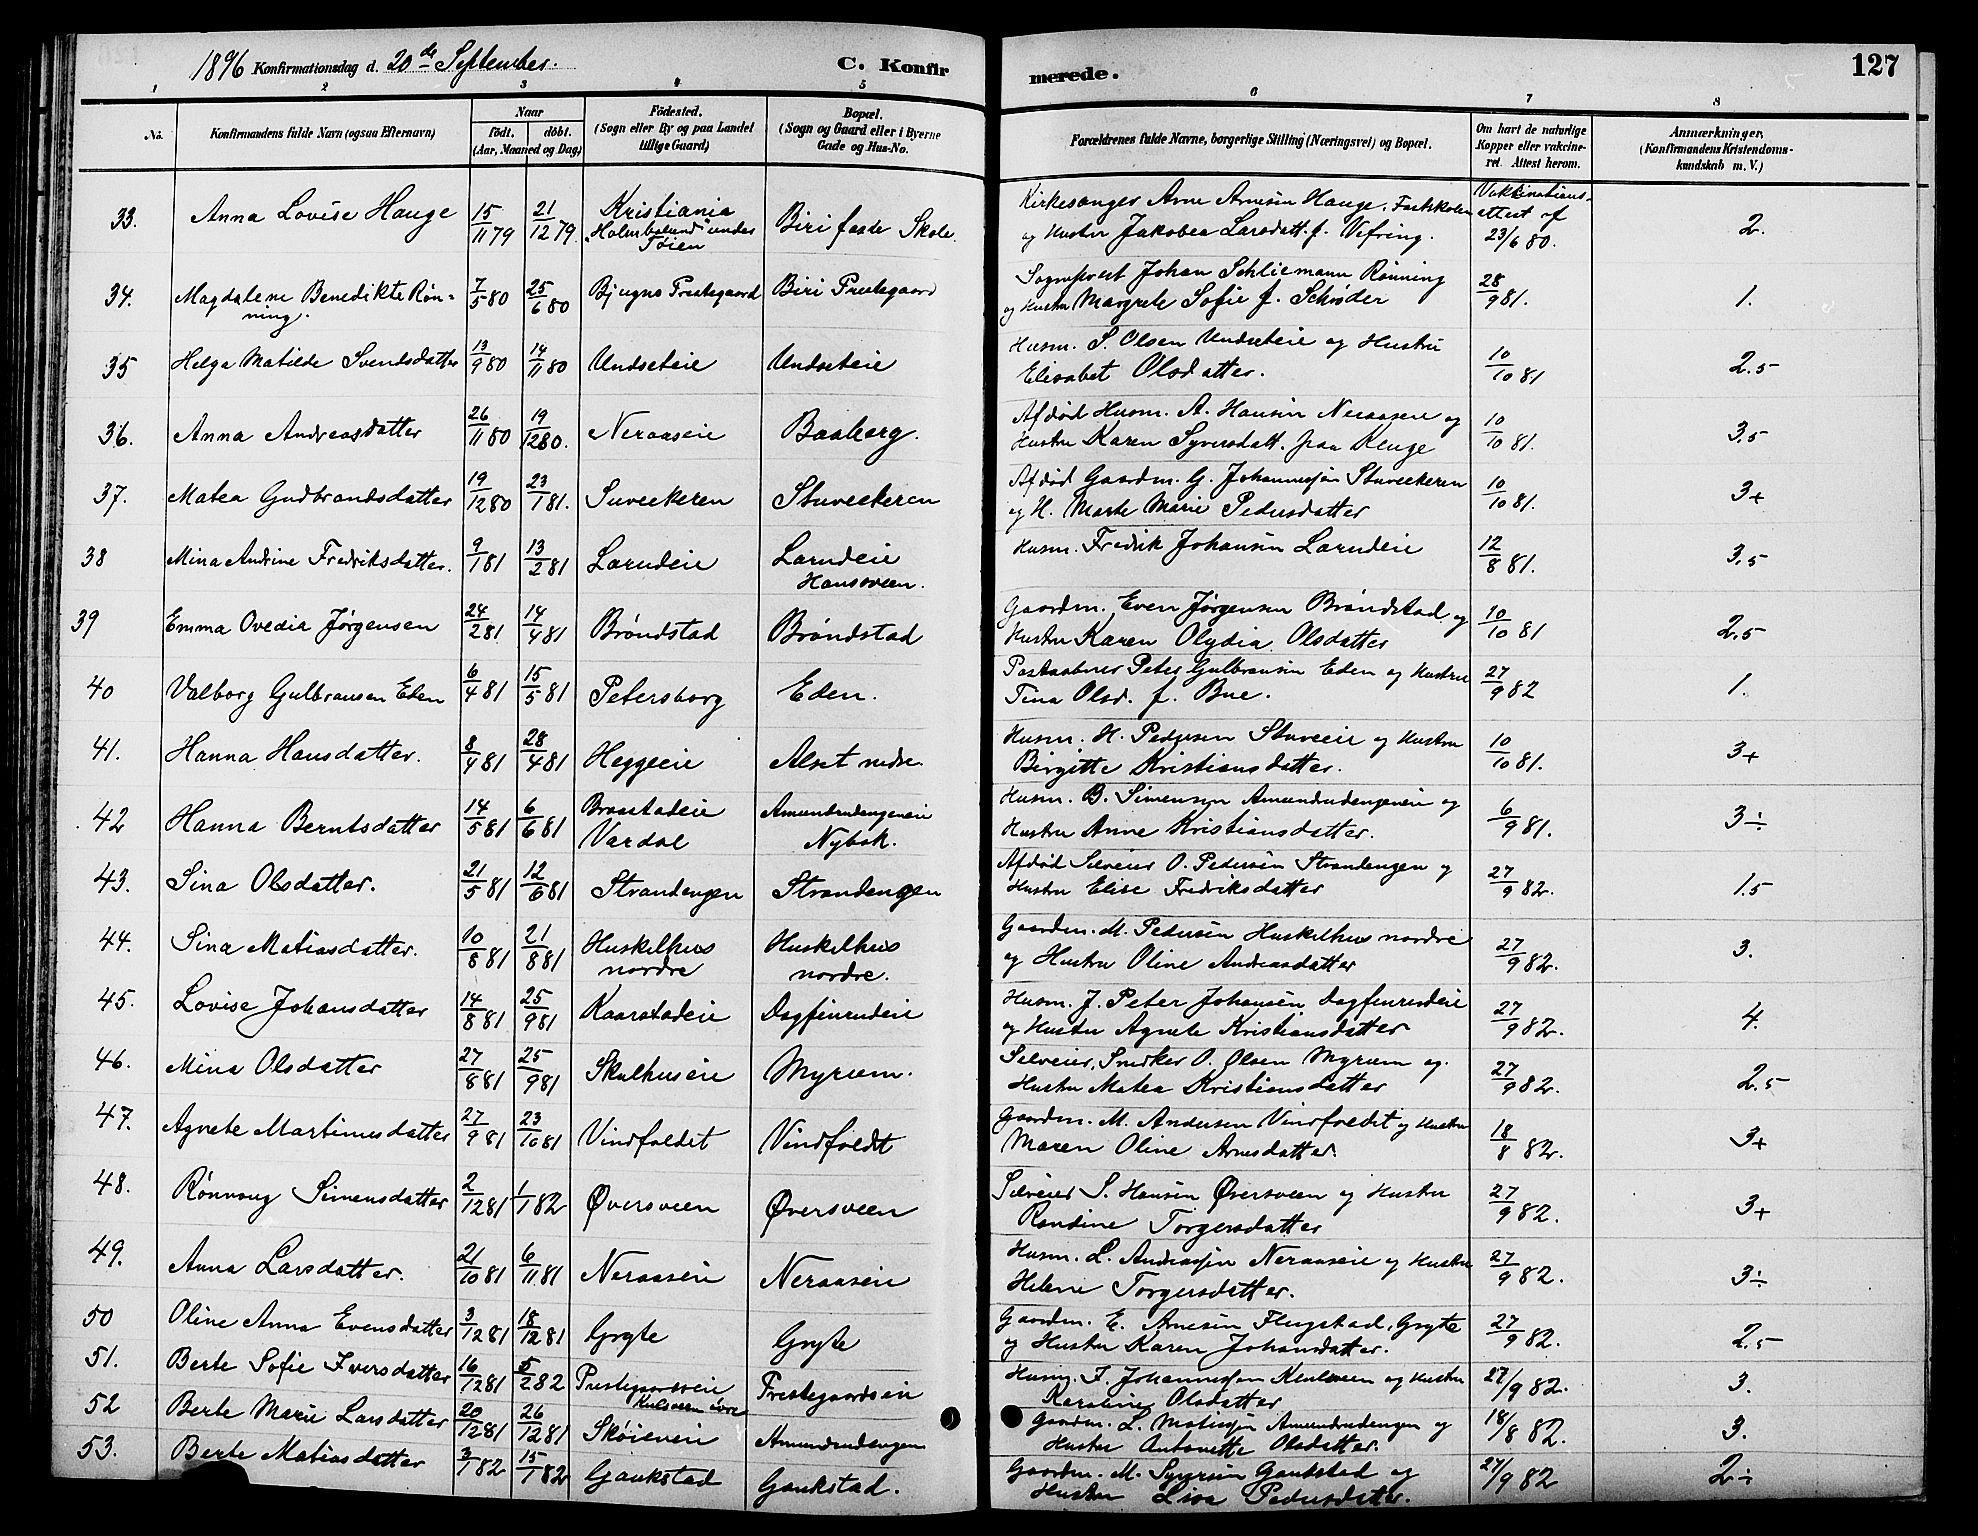 1896 Konfirmationsdag d. 20de September. C. Konfir merede. 127
1 2 3 4 5 6 7 8
No. Konfirmandens fulde Navn (ogsaa Efternavn) Naar födt. döbt. (Aar, Maaned og Dag) Födested. (Sogn eller By og paa Landet tillige Gaard) Bopæl. (Sogn og Gaard eller i Byerne Gade og Hus-No. Forældrenes fulde Navne, borgerlige Stilling (Næringsvei) og Bopæl. Om havt de naturlige Kopper eller vaccineret. Attest herom. Anmærkninger, (Konfirmandens Kristendomskundskab m. V.)
33. Anna Lovise Hauge 15/11 79 21/12 79. Kristiania Holmbolund under Tøien Biri faste Skole. Kirkesanger Arne Arnesen Hauge, Fastskolen
og Hustru Jakobea Larsdatt. f. Vefring. Vakcinations-attest af 23/6 80. 2.
34. Magdalene Benedikte Røn-
ning. 7/5 80 25/6 80 Bjugns Prestegaard Biri Prestegaard Sogneprest Johan Schliemann Rønning
og Hustru Margrete Sofie f. Schrøder 28/9 81. 1.
35 Helga Matilde Svendsdatter 13/9 80 14/11 80 Undseteie Undseteie Husm. S. Olsen Undseteie og Hustru
Elisabet Olsdatter. 10/10 81 2.5
36. Anna Andreasdatter 26/11 80 19/12 80. Neraaseie Baaberg. Afdød Husm. A. Hansen Neraaseie og
Hustru Karen Syversdatt. paa Kluge 10/10 81. 3.5
37. Matea Gudbrandsdatter 19/12 80 23/1 81. Suveekeren Stuveekeren Afdød Gaardm. G. Johannessen Stuveekeren
og H. Marte Marie Pedersdatter 10/10 81. 3+
38 Mina Andrine Fredriksdatter. 9/1 81 13/2 81 Larudeie Larudeie
Hansveen. Husm. Fredrik Johansen Larudeie 12/8 81. 3.5
39 Emma Ovedia Jørgensen 24/2 81 14/4 81 Brøndstad Brøndstad Gaardm. Even Jørgensen Brøndstad og
Hustru Karen Olydia Olsdatter 10/10 81 2.5
40 Valborg Gulbransen Eden 6/4 81 15/5 81 Petersborg Eden. Postaabner Peter Gulbransen Eden og Hustru
Tina Olsd. f. Bue. 27/9 82 1.
41. Hanna Hansdatter. 8/4 81 28/4 81 Heggeeie Alset nedre. Husm. H. Pedersen Stuveeie og Hustru
Birgitte Kristiansdatter. 10/10 81. 3+
42 Hanna Berntsdatter 14/5 81 6/6 81 Braastadeie
Vardal Amundrudengeneie
Nybak. Husm. B. Simensen Amundrudengeneie og
Hustru Anne Kristiansdatter. 6/9 81. 3÷
43. Sina Olsdatter. 21/5 81 12/6 81 Strandengen Strandengen Afdød Selveier O. Pedersen Strandengen og
Hustru Elise Fredriksdatter 27/9 82. 1.5
44. Sina Matiasdatter. 10/8 81 21/8 81 Huskelhus
nordre Huskelhus
nordre. Gaardm. M. Pedersen Huskelhus nordre
og Hustru Oline Andreasdatter 27/9 82. 3.
45. Lovise Johansdatter 14/8 81 25/9 81 Kaarstadeie Dagfinrudeie Husm. J. Peter Johansen Dagfinrudeie
og Hustru Agnete Kristiansdatter 27/9 82. 4.
46. Mina Olsdatter 27/8 81 25/9 81 Skulhuseie Myrum. Selveier, Snedker O. Olsen Myrum og
Hustru Matea Kristiansdatter 27/9 82. 2.5
47. Agnete Martinusdatter 27/9 81 23/10 81 Vindfaldet Vindfaldt Gaardm. M. Andersen Vindfaldet og Hustru
Maren Oline Arnesdatter. 18/8 82. 3+
48. Rønnaug Simensdatter 2/12 81 1/1 82 Øversveen Øversveen Selveier S. Hansen Øversveen og Hustru
Randine Torgersdatter 27/9 82. 3+
49. Anna Larsdatter. 21/10 81 6/11 81 Neraaseie Neraaseie Husm. L. Andreassen Neraaseie og Hustru
Helene Torgersdatter. 27/9 82. 3÷
50 Oline Anna Evensdatter 3/12 81 18/12 81 Gryte Gryte Gaardm. E. Arnesen Flugstad, Gryte
og Hustru Karen Johansdatter. 27/9 82. 2.5
51. Berte Sofie Iversdatter 16/12 81 5/2 82 Prestegaardseie
Kulsveen øvre Prestegaardseie Husm. I. Johannessen Kulsveen og Hustru
Karoline Olsdatter 27/9 82. 3.
52 Berte Marie Larsdatter 20/12 81 26/12 81 Skøieneie Amundrudengen Gaardm. L. Matissen Amundrudengen og
Hustru Antonette Olsdatter. 18/8 82. 3.
53. Berte Matiasdatter 3/1 82 15/1 82 Gaukstad Gaukstad. Gaardm. M. Syversen Gaukstad og
Hustru Lisa Pedersdatter. 27/9 82 2÷